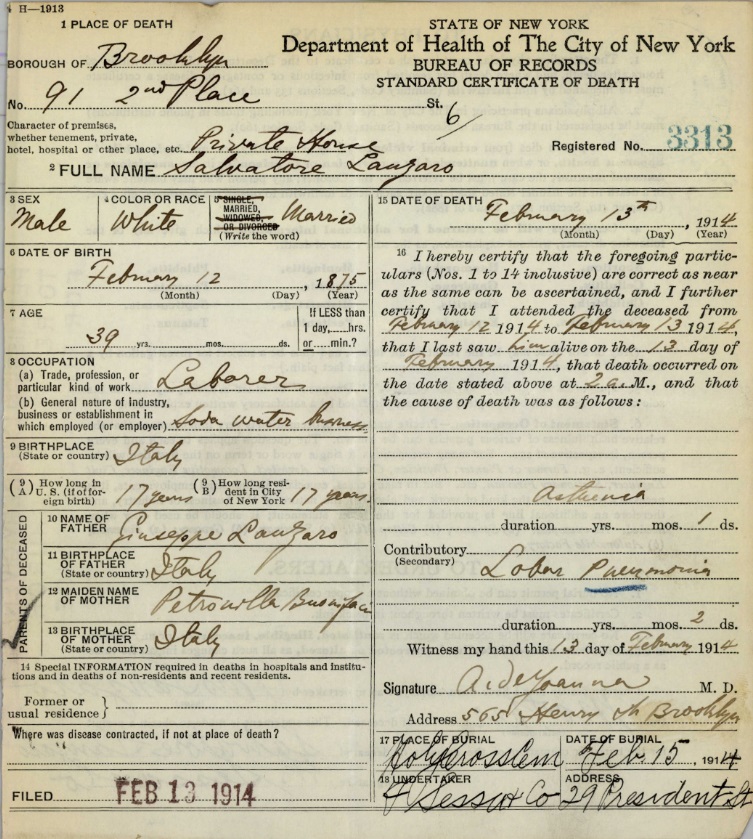 H—1913
1 PLACE OF DEATH
BOROUGH OF Brooklyn
No. 91 2nd Place St. 6
Character of premises,
whether tenement, private,
hotel, hospital or other place, etc. Private House
STATE OF NEW YORK
Department of Health of The City of New York
BUREAU OF RECORDS
STANDARD CERTIFICATE OF DEATH
Registered No. 3313
2 FULL NAME Salvatore Lanzaro
3 SEX
Male
4 COLOR OR RACE
White
5 SINGLE,
MARRIED,
WIDOWED,
OR DIVORCED
(Write the word)
Married
6 DATE OF BIRTH
February 12, 1875
(Month) (Day) (Year)
7 AGE
39 yrs. mos. ds.
If LESS than
1 day, hrs.
or min.?
8 OCCUPATION
(a) Trade, profession, or
particular kind of work Laborer
(b) General nature of industry,
business or establishment in
which employed (or employer) Soda water business
9 BIRTHPLACE
(State or country) Italy
(9 A) How long in
U. S. (if of for-
eign birth) 17 years
(9 B) How long resi-
dent in City
of New York 17 years
PARENTS OF DECEASED
10 NAME OF
FATHER Giuseppe Lanzaro
11 BIRTHPLACE
OF FATHER
(State or country) Italy
12 MAIDEN NAME
OF MOTHER Petronilla
13 BIRTHPLACE
OF MOTHER
(State or country) Italy
14 Special INFORMATION required in deaths in hospitals and institu-
tions and in deaths of non-residents and recent residents.
Former or
usual residence }
Where was disease contracted, if not at place of death?
FILED FEB 13 1914
15 DATE OF DEATH
February 13th, 1914
(Month) (Day) (Year)
16 I hereby certify that the foregoing partic-
ulars (Nos. 1 to 14 inclusive) are correct as near
as the same can be ascertained, and I further
certify that I attended the deceased from
February 12 1914 to February 13 1914,
that I last saw him alive on the 13 day of
February 1914, that death occurred on
the date stated above at 2 a. M., and that
the cause of death was as follows:
Asthenia
duration yrs. mos. 1 ds.
Contributory
(Secondary) Lobar Pneumonia
duration yrs. mos. 2 ds.
Witness my hand this 13 day of February 1914
Signature M. D.
Address 565 Henry St Brooklyn
17 PLACE OF BURIAL
Holy Cross Cem
DATE OF BURIAL
Feb 15, 1914
18 UNDERTAKER
F Sessa & Co
ADDRESS
29 President St